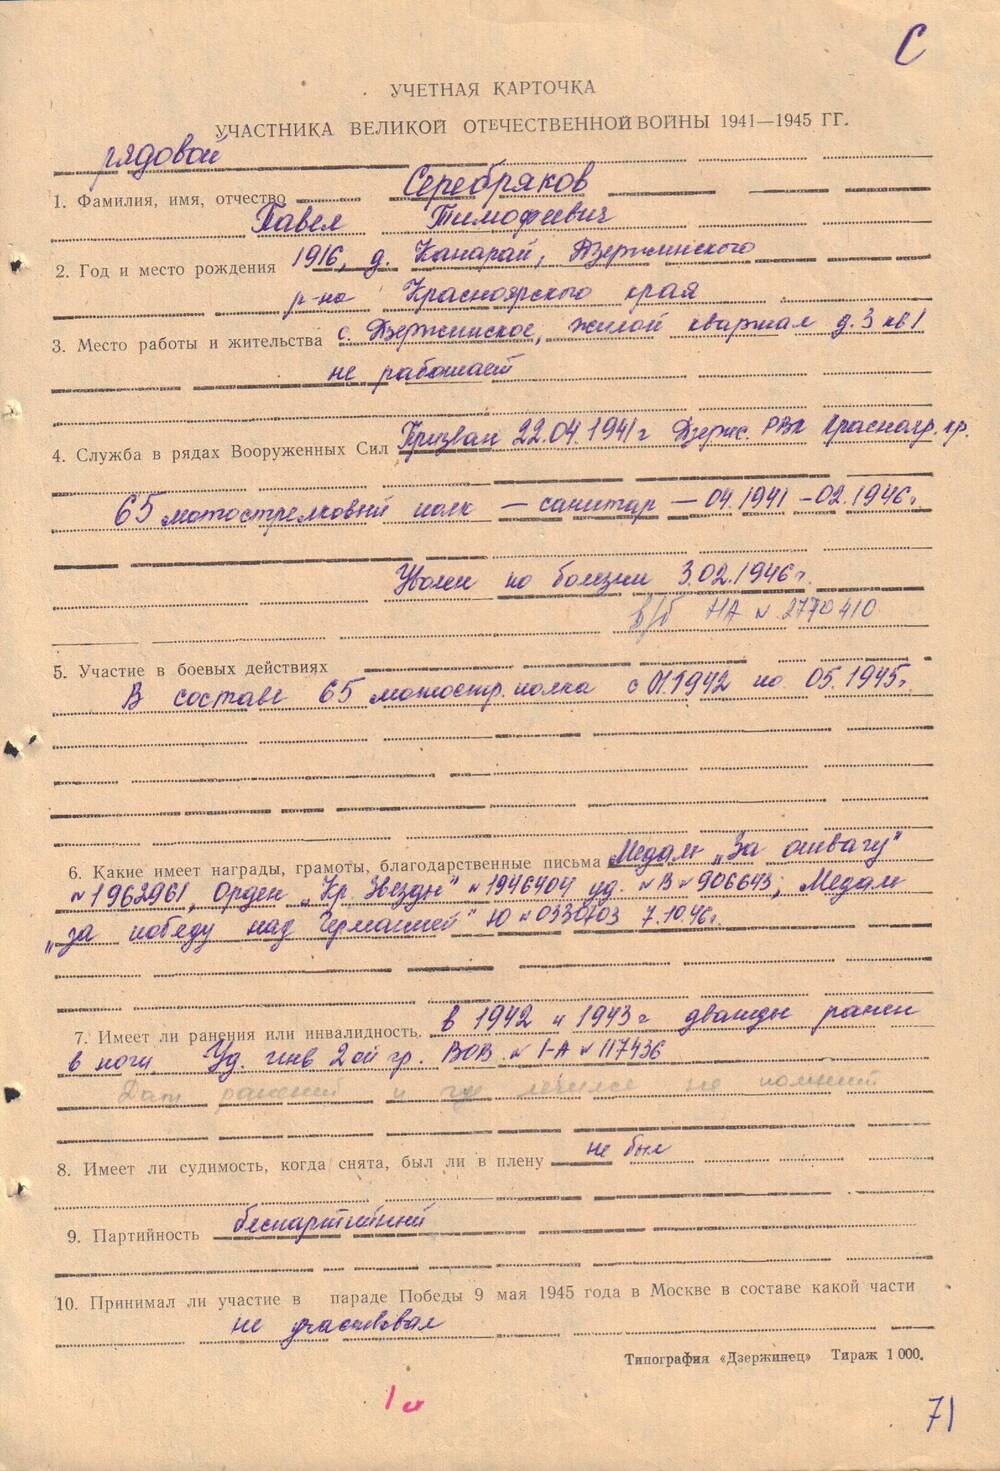 С
УЧЕТНАЯ КАРТОЧКА
УЧАСТНИКА ВЕЛИКОЙ ОТЕЧЕСТВЕННОЙ ВОЙНЫ 1941—1945 ГГ.
рядовой
1. Фамилия, имя, отчество Серебряков
Павел Тимофеевич
2. Год и место рождения 1916, д. Канарай, Дзержинского
р-на Красноярского края
3. Место работы и жительства с. Дзержинское, жилой квартал д. 3 кв 1
не работает
4. Служба в рядах Вооруженных Сил Призван 22.04.1941 г Дзерж. РВК Краснояр. кр.
65 мотострелковый полк — санитар — 04.1941 - 02.1946 г.
Уволен по болезни 3.02.1946 г.
в/б НА № 2770410
5. Участие в боевых действиях
В составе 65 мотостр. полка с 01.1942 по 05.1945 г.
6. Какие имеет награды, грамоты, благодарственные письма Медаль „За отвагу"
№ 1962961, Орден „Кр. Звезды" № 1946404 уд. № В № 906643; Медаль
„за победу над Германией" Ю № 0330703 7.10.46 г.
7. Имеет ли ранения или инвалидность. в 1942 и 1943 г дважды ранен
в ноги. Уд. инв 2ой гр. ВОВ. № I-А № 117436
Дат ранений и где лечился не помнит
8. Имеет ли судимость, когда снята, был ли в плену не был
9. Партийность беспартийный
10. Принимал ли участие в параде Победы 9 мая 1945 года в Москве в составе какой части
не участвовал
Типография «Дзержинец» Тираж 1 000.
71